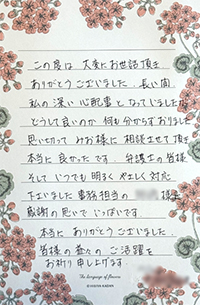 この度は 大変にお世話頂き
ありがとうございました。長い間
私の深い心配事となっていましたが
どうして良いのか 何も分からずおりました
思い切って みお様に相談させて頂き
本当に良かったです。弁護士の皆様
そして いつでも明るくやさしく対応
下さいました 事務担当の 様
感謝の思いでいっぱいです。
本当に ありがとうございました。
皆様の益々のご活躍を
お祈り申し上げます。
The Language of flowers